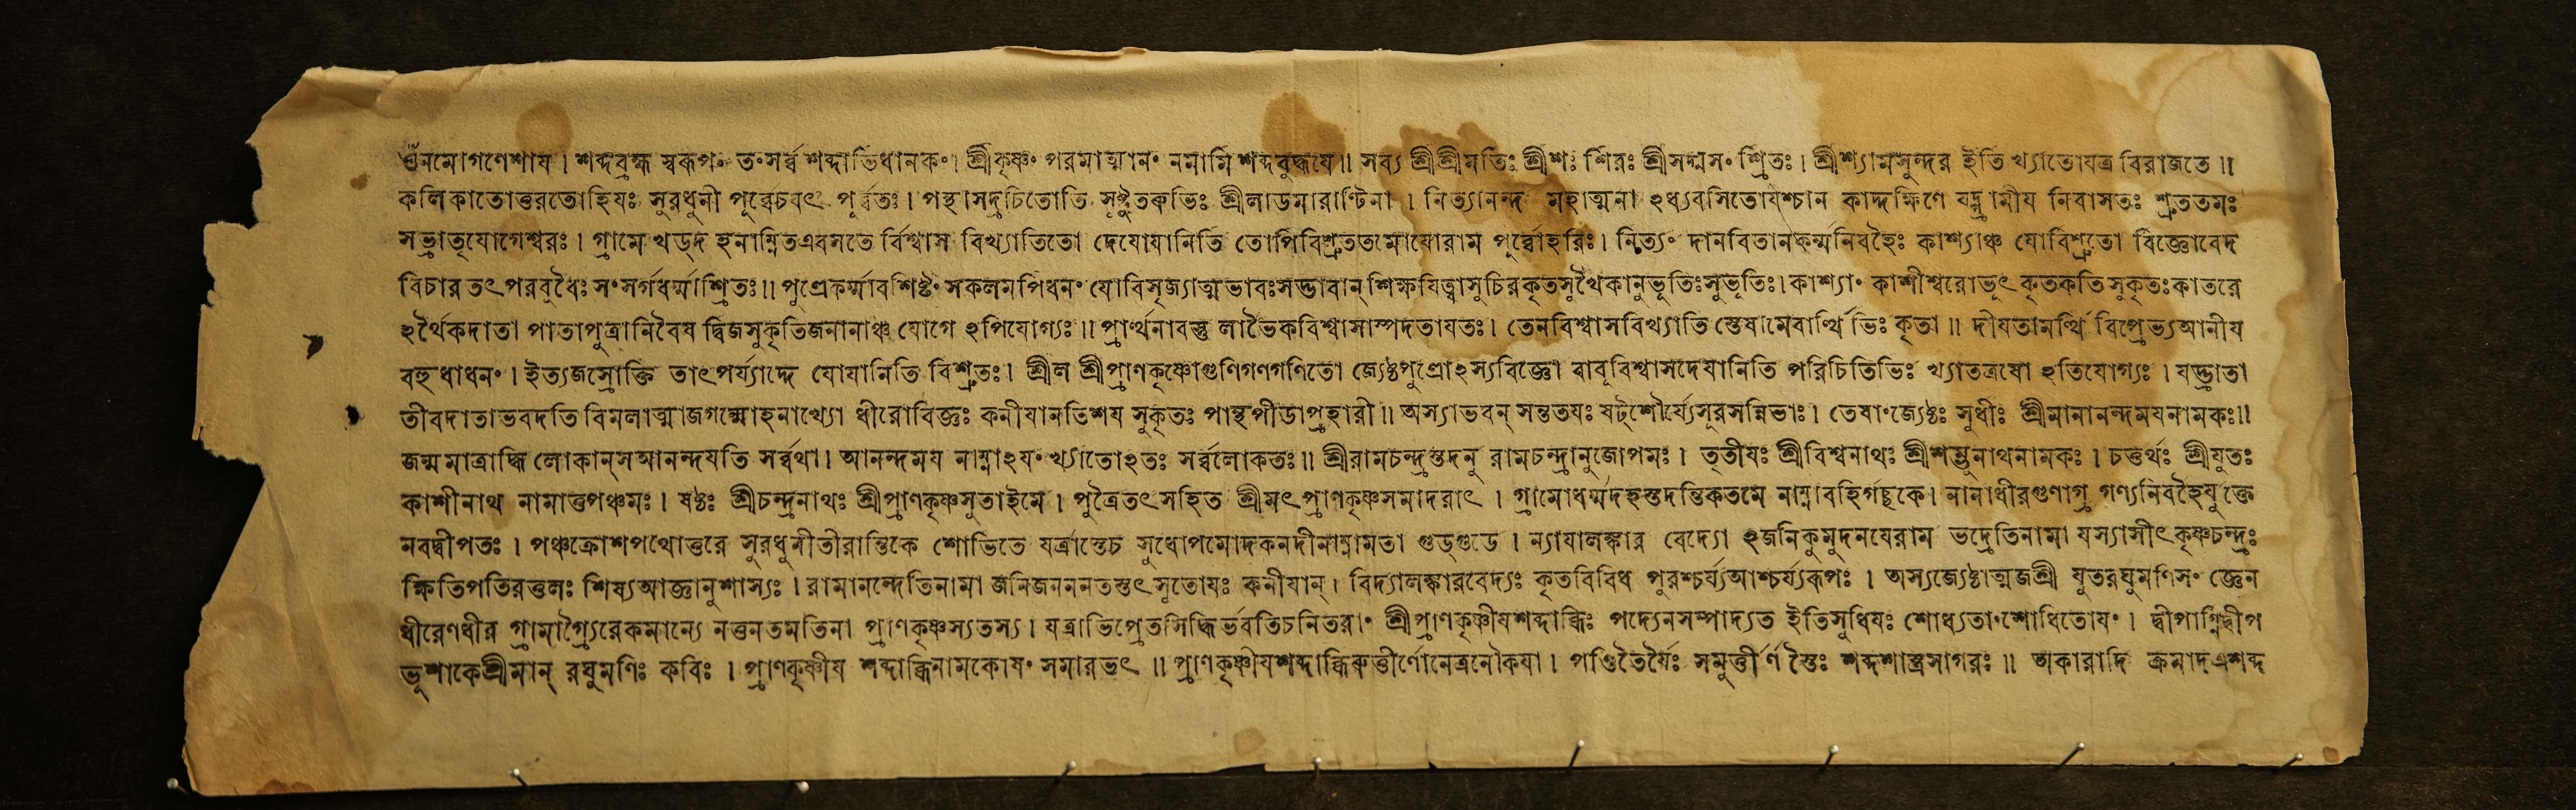 ওঁনমোগণেশায । শব্দব্রহ্ম স্বরূপং তংসর্ব্ব শব্দাভিধানকং। শ্রীকৃষ্ণং পরমাত্মানং নমামি শব্দবুদ্ধযে॥ সব্য শ্রীশ্রীমতিঃ শ্রীশঃ শিরঃ শ্রীসদ্মসং শ্রিতঃ। শ্রীশ্যামসুন্দর ইতি খ্যাতোযত্র বিরাজতে ॥
কলিকাতোত্তরতোহিযঃ সুরধুনী পূর্ব্বতঃ । নিত্যানন্দ মহাত্মনা ঽধ্যবসিতোযশ্চান কাদ্দক্ষিণে নিবাসতঃ শ্রুততমঃ
সভ্রাতৃযোগেশ্বরঃ । গ্রামে খড্দ হনাম্নিতএবসতে র্বিশ্বাস বিখ্যাতিতো দেযোযানিতি তোপিবিশ্রুততমোযোরাম পুর্ব্বোহরিঃ। নিত্যং দানবিতানকর্ম্মনিবহৈঃ কাশ্যাঞ্চ যোবিশ্রুতো বিজ্ঞোবেদ
বিচার তৎপরবুধৈঃ সংসর্গধর্ম্মাশ্রিতঃ॥ পুত্রেকর্ম্মাবশিষ্টং সকলমপিধনং যোবিসৃজ্যাত্মভাবঃসদ্ভাবান্ শিক্ষযিত্বাসুচিরকৃতসুখৈকানুভূতিঃসুভূতিঃ। কাশ্যাং কাশীশ্বরোভূৎ কৃতকতি সুকৃতঃকাতরে
ঽর্থৈকদাতা পাতাপুত্রানিবৈষ দ্বিজসুকৃতিজনানাঞ্চ যোগে ঽপিযোগ্যঃ ॥ প্রার্থনাবস্তু লাভৈকবিশ্বাসাস্পদতাযতঃ। তেনবিশ্বাসবিখ্যাতি স্তেষামেবার্থি ভিঃ কৃতা ॥ দীযতামর্থি বিপ্রেভ্যআনীয
বহুধাধনং । ইত্যজস্রোক্তি তাৎপর্য্যাদ্দে যোযানিতি বিশ্রুতঃ। শ্রীল শ্রীপ্রাণকৃষ্ণোগুণিগণগণিতো জ্যেষ্ঠপুত্রোঽস্যবিজ্ঞো বাবূবিশ্বাসদেযানিতি পরিচিতিভিঃ খ্যাতত্রযো ঽতিযোগ্যঃ । যদ্ভ্রাতা
তীবদাতাভবদতি বিমলাত্মাজগন্মোহনাখ্যো ধীরোবিজ্ঞঃ কনীযানতিশয সুকৃতঃ পান্থপীডাপ্রহারী ॥ অস্যাভবন্ সন্ততযঃ ষট্শৌর্য্যেসূরসন্নিভাঃ। তেষাংজ্যেষ্ঠঃ সুধীঃ শ্রীমানানন্দময়নামকঃ॥
জন্মমাত্রাদ্ধি লোকান্সআনন্দযতি সর্ব্বথা। আনন্দময নাম্নাঽযং খ্যাতোঽতঃ সর্ব্বলোকতঃ॥ শ্রীরামচন্দ্রস্তদনু রামচন্দ্রানুজোপমঃ । তৃতীযঃ শ্রীবিশ্বনাথঃ শ্রীশম্ভুনাথনামকঃ । চতুর্থঃ শ্রীযুতঃ
কাশীনাথ নামাতুপঞ্চমঃ । ষষ্ঠঃ শ্রীচন্দ্রনাথঃ শ্রীপ্রাণকৃষ্ণসুতাইমে । পুত্রৈতৎসহিত শ্রীমৎ প্রাণকৃষ্ণসমাদরাৎ । গ্রামোধর্ম্মদহস্তদন্তিকতমে নাম্নাবহির্গচ্ছকে। নানাধীরগুণাগ্র গণ্যনিবহৈর্যুক্তে
নবদ্বীপতঃ । পঞ্চক্রোশপথোত্তরে সুরধুনীতীরান্তিকে শোভিতে যত্রাস্তেচ সুধোপমোদকনদীনাম্নামতা গুড্গুডে । ন্যাযালঙ্কার বেদ্যো ঽজনিকুমুদনযেরাম ভদ্রেতিনামা যস্যাসীৎ কৃষ্ণচন্দ্রঃ
ক্ষিতিপতিরতুলঃ শিষ্যআজ্ঞানুশাস্যঃ । রামানন্দেতিনামা জনিজনননতস্তৎসুতোযঃ কনীযান্। বিদ্যালঙ্কারবেদ্যঃ কৃতবিবিধ পুরশ্চর্য্যআশ্চর্য্যরূপঃ । অস্যজ্যেষ্ঠাত্মজশ্রী যুতরঘুমণিসং জ্ঞেন
ধীরেণধীর গ্রামাগ্র্যৈরেকমান্যে নতুনতমতিনা প্রাণকৃষ্ণস্যতস্য। যত্রাভিপ্রেতসিদ্ধি র্ভবতিচনিতরাং শ্রীপ্রাণকৃষ্ণীযশব্দাব্ধিঃ পদ্যেনসম্পাদ্যত ইতিসুধিযঃ শোধ্যতাংশোধিতোযং । দ্বীপাগ্নিদ্বীপ
ভূশাকেশ্রীমান্ রঘুমণিঃ কবিঃ । প্রাণকৃষ্ণীয শব্দাব্ধিনামকোষং সমারভৎ ॥ প্রাণকৃষ্ণীযশব্দাব্ধিরুত্তীর্ণোনেত্রনৌকযা। পণ্ডিতৈর্যৈঃ সমুত্তীর্ণ স্তৈঃ শব্দশাস্ত্রসাগরঃ ॥ অকারাদি ক্রমাদ্এশব্দ